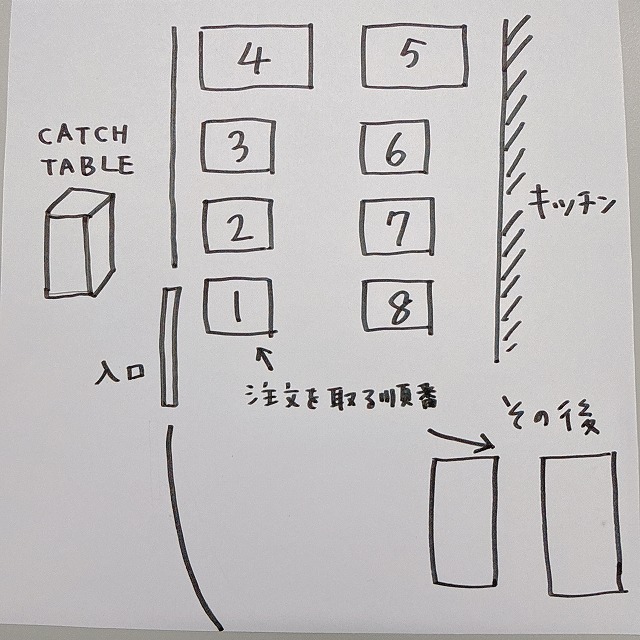 4 5
CATCH
TABLE
3 6
キッチン
2 7
1 8
入口
注文を取る順番
その後